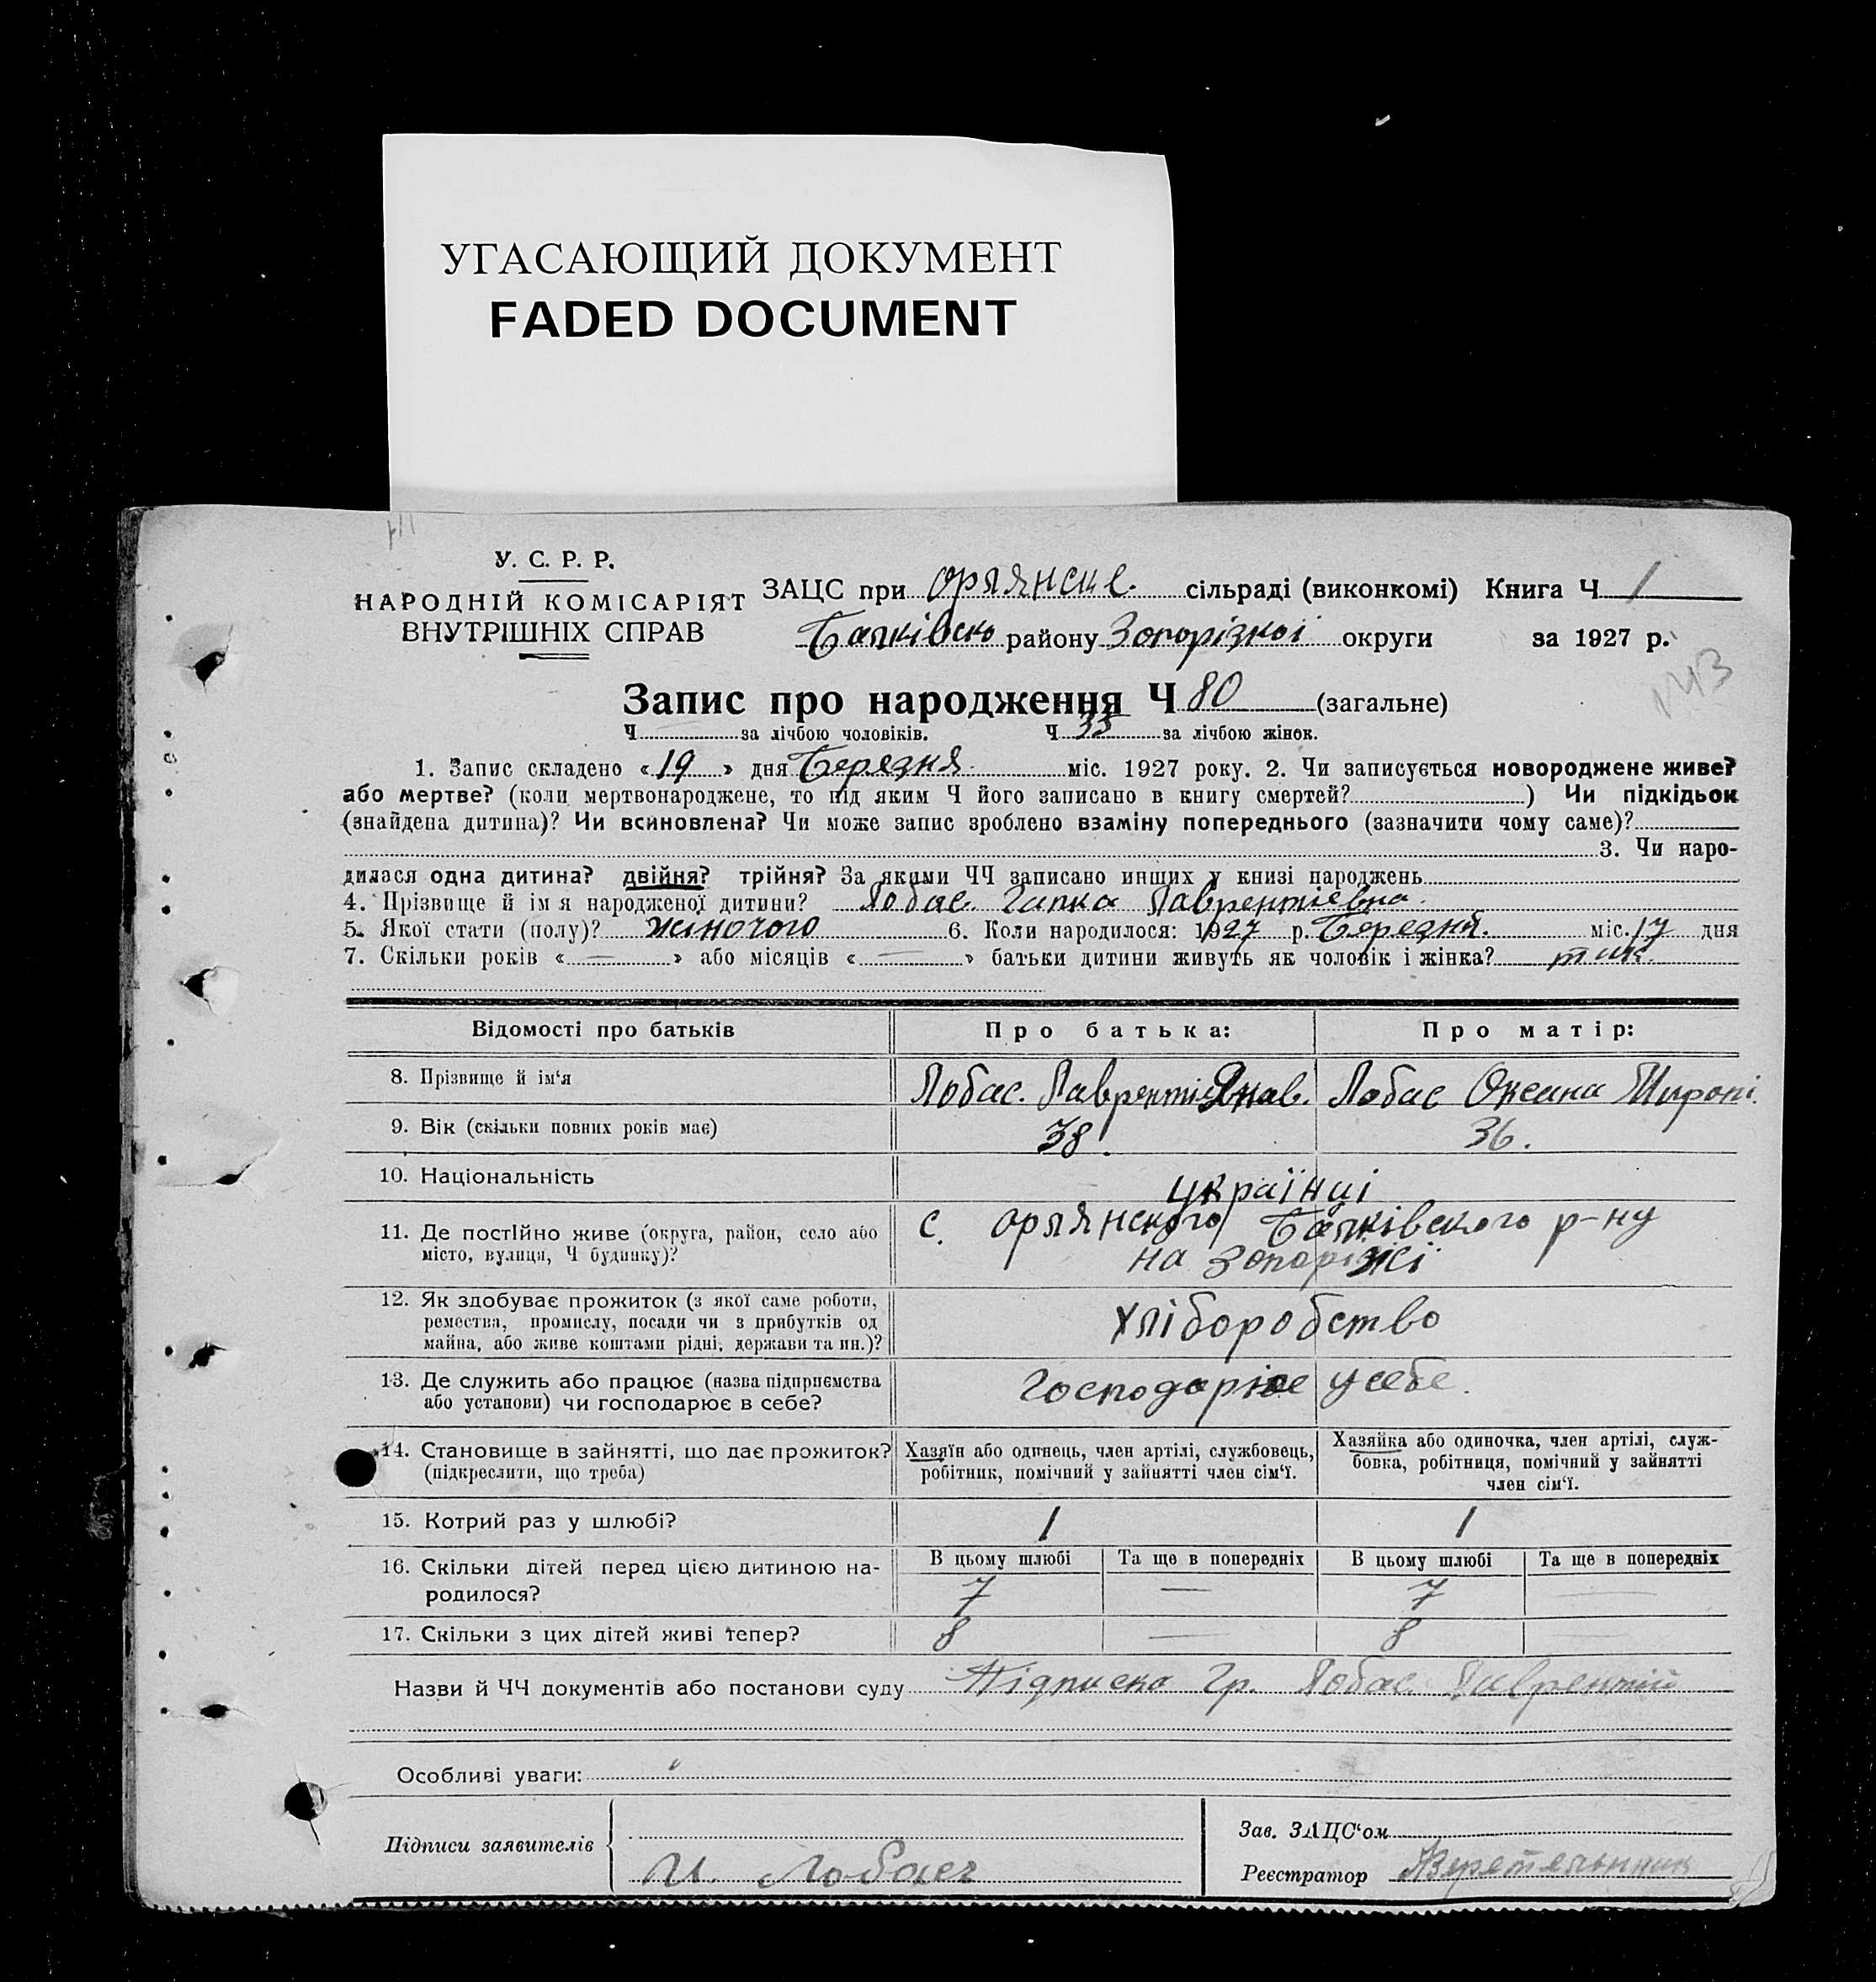 УГАСАЮЩИЙ ДОКУМЕНТ
FADED DOCUMENT
У. С. Р. Р.
НАРОДНІЙ КОМІСАРІЯТ
ВНУТРІШНІХ СПРАВ
ЗАЦС при Орлянске. сільраді (виконкомі) Книга Ч 1
Балківско району Зопорізкої округи за 1927 р.
143
Запис про народження Ч 80 (загальне)
Ч за лічбою чоловіків. Ч 35 за лічбою жінок.
1. Запис складено «19» дня Березня міс. 1927 року. 2. Чи записується новороджене живе?
або мертве? (коли мертвонароджене, то під яким Ч його записано в книгу смертей? ) Чи підкідьок
(знайдена дитина)? Чи всиновлена? Чи може запис зроблено взаміну попереднього (зазначити чому саме)?
3. Чи наро-
дилася одна дитина? двійня? трійня? За якими ЧЧ записано инших у книзі народжень
4. Прізвище й імя народженої дитини? Лобас. Гапка Лаврентіевна.
5. Якої стати (полу)? жіночого 6. Коли народилося: 1927 р. Березня. міс. 17 дня
7. Скільки років «—» або місяців «—» батьки дитини живуть як чоловік і жінка? так.
Відомості про батьків Про батька: Про матір:
8. Прізвище й ім‘я Лобас. Лаврентій Лобас Оксана Мироні.
9. Вік (скільки повних років має) 38. 36.
10. Національність українці
11. Де постійно живе (округа, район, село або місто, вулиця, Ч будинку)? с. Орлянского Балківского р-ну
на Зопоріжі
12. Як здобуває прожиток (з якої саме роботи,
ремества, промислу, посади чи з прибутків од
майна, або живе коштами рідні, держави та ин.)? хліборобство
13. Де служить або працює (назва підприємства
або установи) чи господарює в себе? Господарює у себе.
14. Становище в зайнятті, що дає прожиток?
(підкреслити, що треба)
Хазяїн або одинець, член артілі, службовець,
робітник, помічний у зайнятті член сім‘ї.
Хазяйка або одиночка, член артілі, служ-
бовка, робітниця, помічний у зайнятті
член сім‘ї.
15. Котрий раз у шлюбі? 1 1
16. Скільки дітей перед цією дитиною на-
родилося?
В цьому шлюбі Та ще в попередніх В цьому шлюбі Та ще в попередніх
7 — 7 —
17. Скільки з цих дітей живі тепер? 8 — 8 —
Назви й ЧЧ документів або постанови суду Підписка гр. Лобас Лаврентій
Особливі уваги:
Підписи заявителів
И. Лобас
Зав. ЗАЦС‘ом
Реєстратор Веретельник